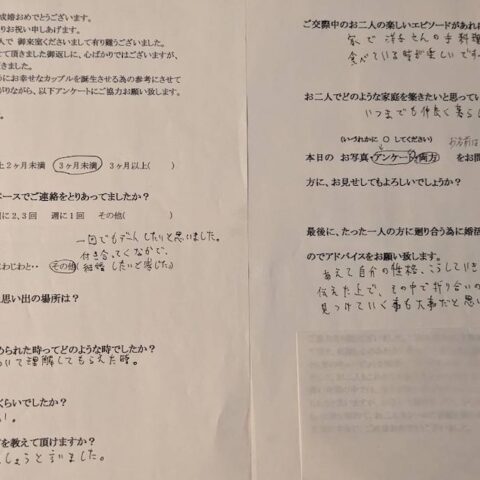 成婚おめでとうございます。
お祝い申しあげます。
人で 御来室くださいまして有り難うございました。
せて頂きました御返しに、心ばかりではございますが、
きました。
うにお幸せなカップルを誕生させる為の参考にさせて
がりながら、以下アンケートにご協力お願い致します。
2ヶ月未満 3ヶ月未満 3ヶ月以上( )
ペースでご連絡をとりあってましたか?
に2、3回 週に1回 その他( )
一回でもデートしたいと思いました。
付き合ってく なかで、
じわじわと・・ その他( 結婚したいと感じた)
思い出の場所は?
められた時ってどのような時でしたか?
いて理解してもらえた時。
くらいでしたか?
を教えて頂けますか?
しょうと言いました。
ご交際中のお二人の楽しいエピソードがあれ
家で 洋子さんの手料理
食べている時が楽しいです
お二人でどのような家庭を築きたいと思ってい
いつまでも仲良く暮らし
(いづれかに ○ してください) お名前は
本日の お写真・アンケート・両方 をお
方に、お見せしてもよろしいでしょうか?
最後に、たった一人の方に廻り合う為に婚活
のでアドバイスをお願い致します。
あえて自分の性格、こうしていき
伝えた上で、その中で折り合いの
見つけていく事も大事だと思い